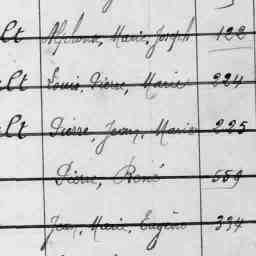 lt Alphonse, Marie, Joseph 122
lt Louis, Pierre, Marie 224
lt Pierre, Jean, Marie 225
Pierre, René 559
Jean, Marie, Eugène 334